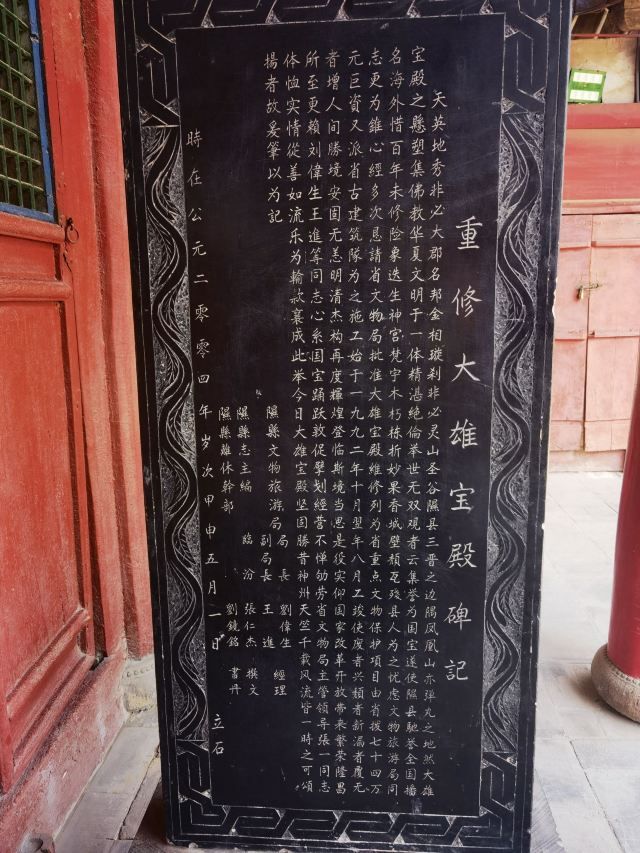 重修大雄宝殿碑記
天英地秀非必大郡名邦金相璇刹非必灵山圣谷隰县三晋之边隅凤凰山亦弹丸之地然大雄
宝殿之懸塑集佛教华夏文明于一体精湛絶倫举世无双观者云集誉为国宝遂使隰县馳誉全国播
名海外惜百年未修险象迭生神宫梵宇木朽栋折妙果香城壁頹瓦残县人为之忧虑文物旅游局同
志更为錐心經多次恳請省文物局批准大雄宝殿維修列为省重点文物保护項目由省拨七十四万
元巨資又派省古建筑隊为之施工始于一九九二年十月翌年八月工竣使废者兴頹者新漏者覆无
者增人间勝境安固无恙明清杰构再度輝煌登临斯境当思是役实仰国家改革开放带来繁荣隆昌
所至更賴刘偉生王進等同志心系国宝踊跃敦促擘划經营不惮劬劳省文物局主管領导張一同志
体恤实情從善如流乐为輸款襄成此举今日大雄宝殿坚固勝昔神州天竺千載风流皆一時之可頌
揚者故爰筆以为記
隰縣文物旅游局 局長 劉偉生
副局長 王進 經理
隰縣志主編 臨汾 張仁杰 撰文
隰縣離休幹部 劉鏡銘 書丹
時在公元二零零四年岁次甲申五月一日 立石